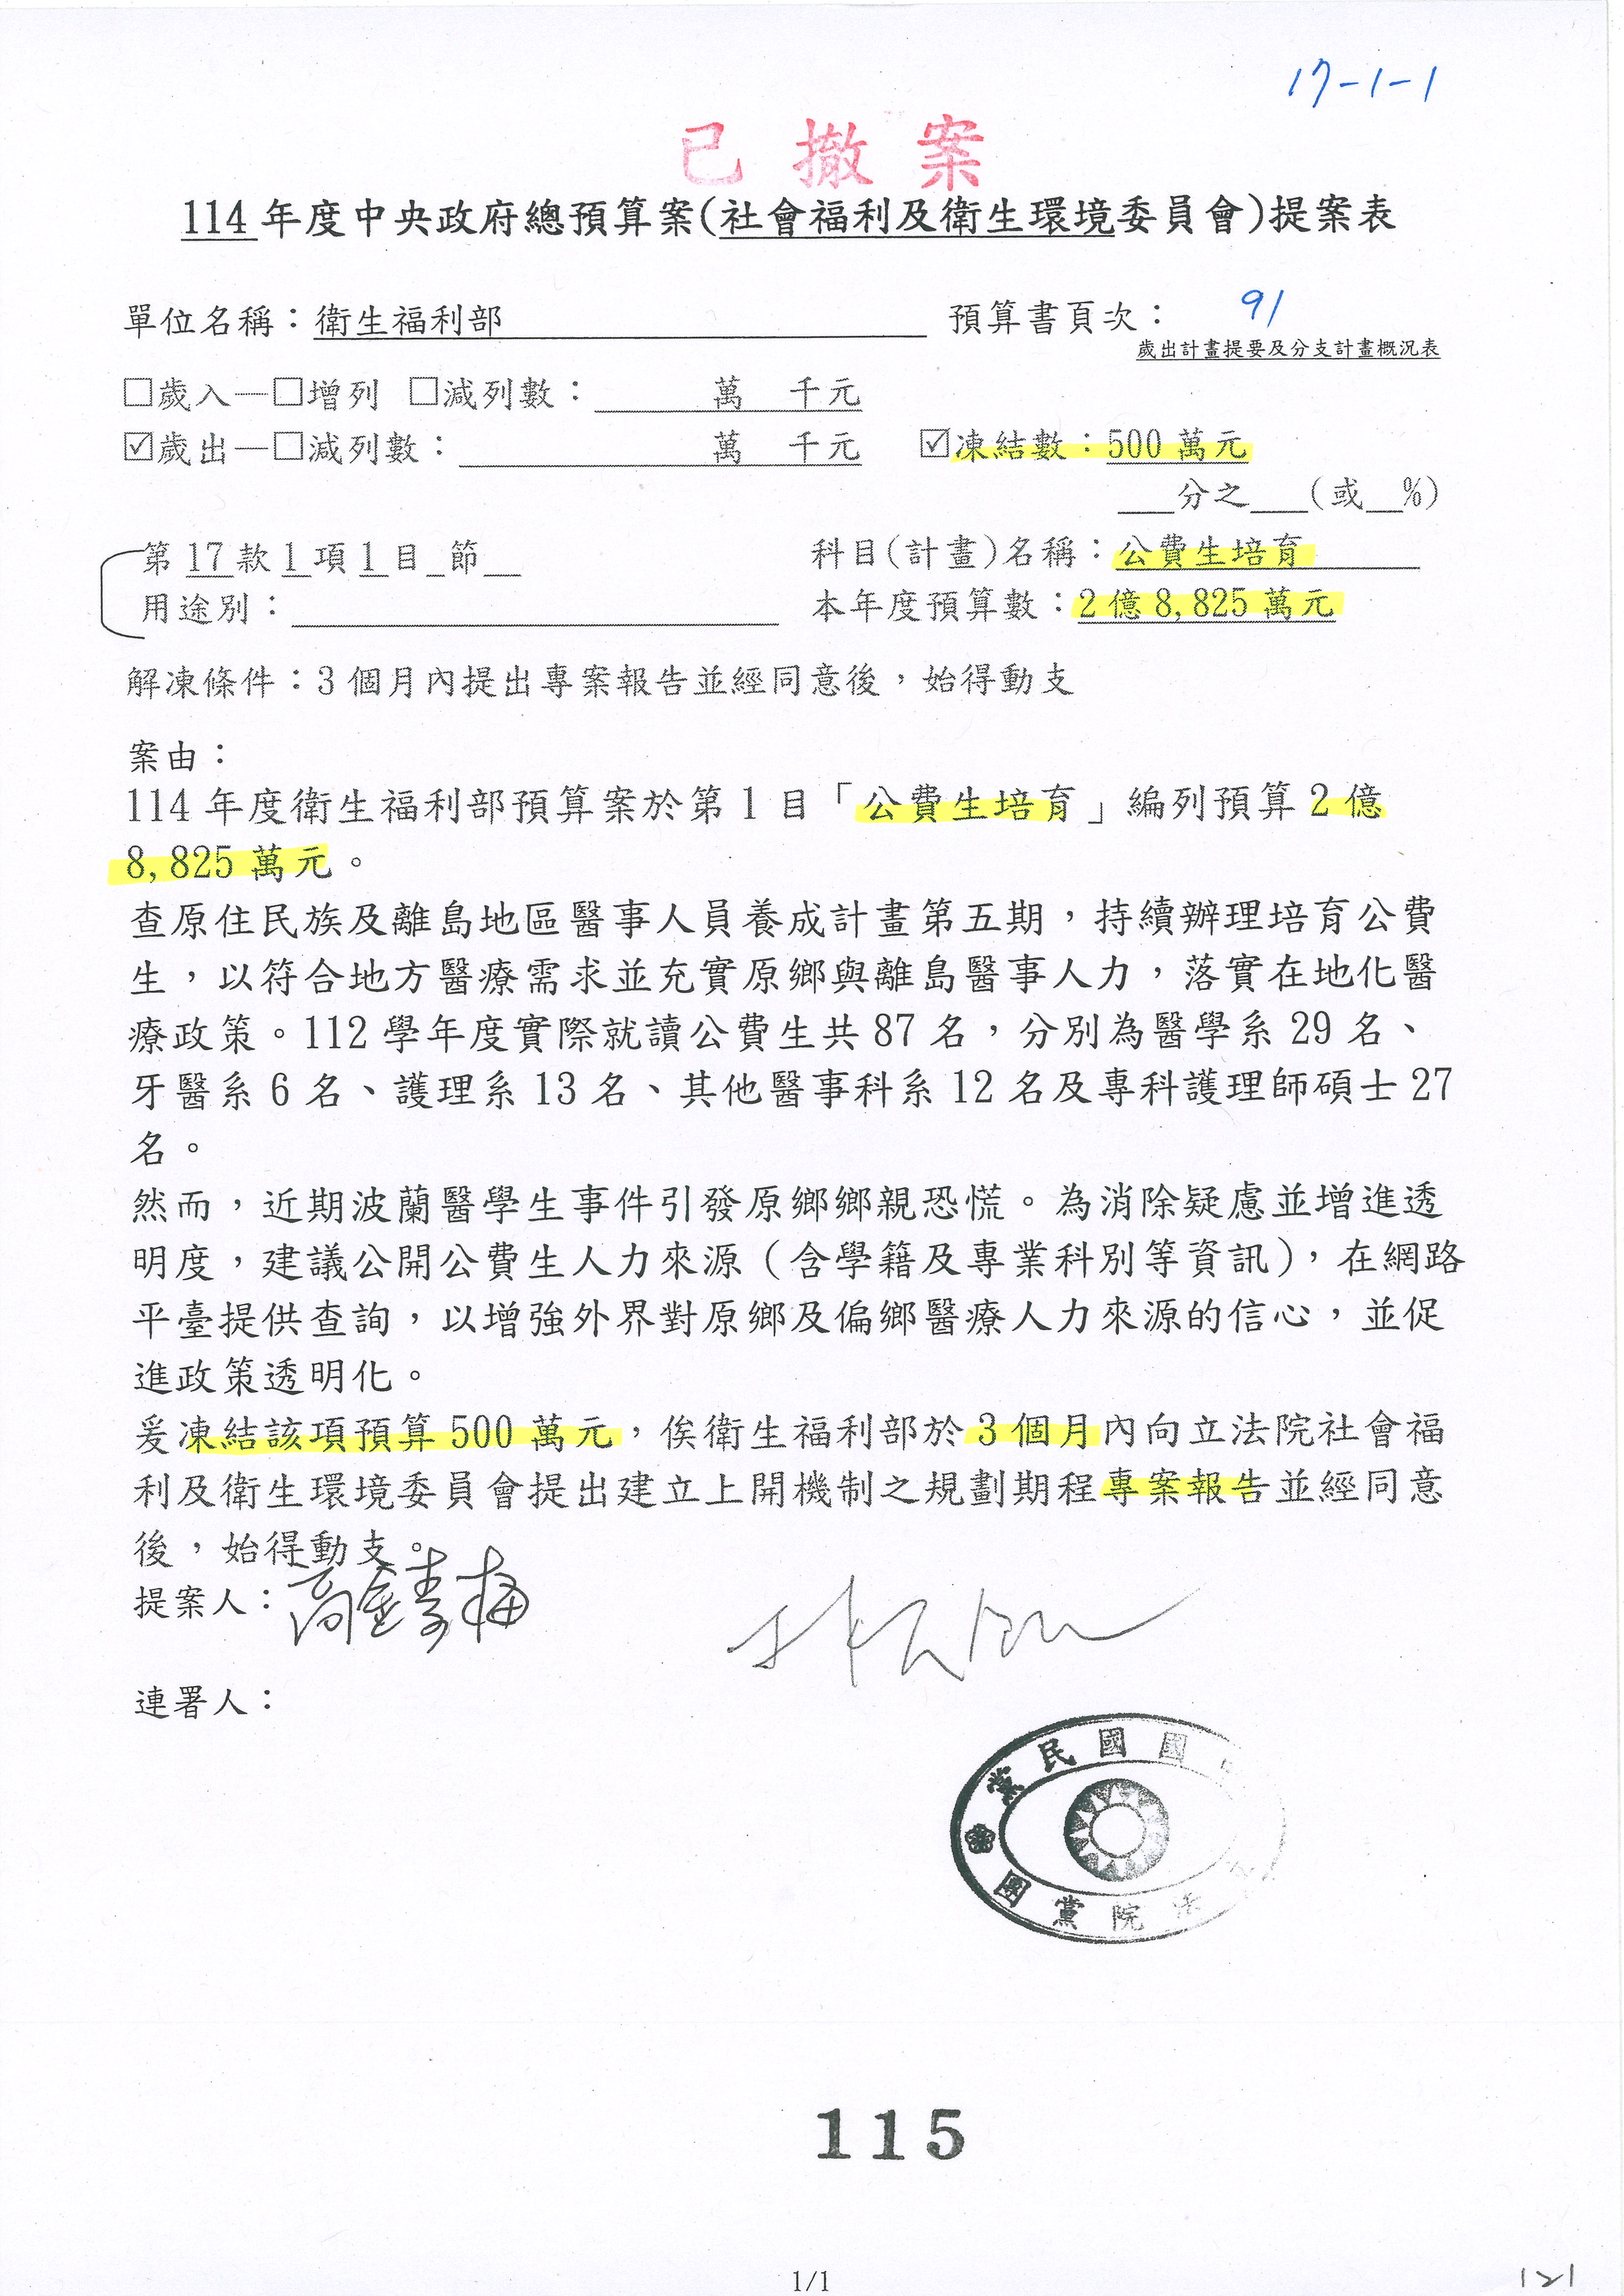 17-1-1
已撤案
114年度中央政府總預算案(社會福利及衛生環境委員會)提案表
單位名稱：衛生福利部 預算書頁次： 91
歲出計畫提要及分支計畫概況表
□歲入—□增列 □減列數： 萬 千元
☑歲出—□減列數： 萬 千元 ☑凍結數：500萬元
___分之___(或__%)
第17款1項1目_節__ 科目(計畫)名稱：公費生培育
用途別： 本年度預算數：2億8,825萬元
解凍條件：3個月內提出專案報告並經同意後，始得動支
案由：
114年度衛生福利部預算案於第1目「公費生培育」編列預算2億
8,825萬元。
查原住民族及離島地區醫事人員養成計畫第五期，持續辦理培育公費
生，以符合地方醫療需求並充實原鄉與離島醫事人力，落實在地化醫
療政策。112學年度實際就讀公費生共87名，分別為醫學系29名、
牙醫系6名、護理系13名、其他醫事科系12名及專科護理師碩士27
名。
然而，近期波蘭醫學生事件引發原鄉鄉親恐慌。為消除疑慮並增進透
明度，建議公開公費生人力來源（含學籍及專業科別等資訊），在網路
平臺提供查詢，以增強外界對原鄉及偏鄉醫療人力來源的信心，並促
進政策透明化。
爰凍結該項預算500萬元，俟衛生福利部於3個月內向立法院社會福
利及衛生環境委員會提出建立上開機制之規劃期程專案報告並經同意
後，始得動支。
提案人：高金素梅
連署人：
國國民黨
法院黨團
115
1/1
121